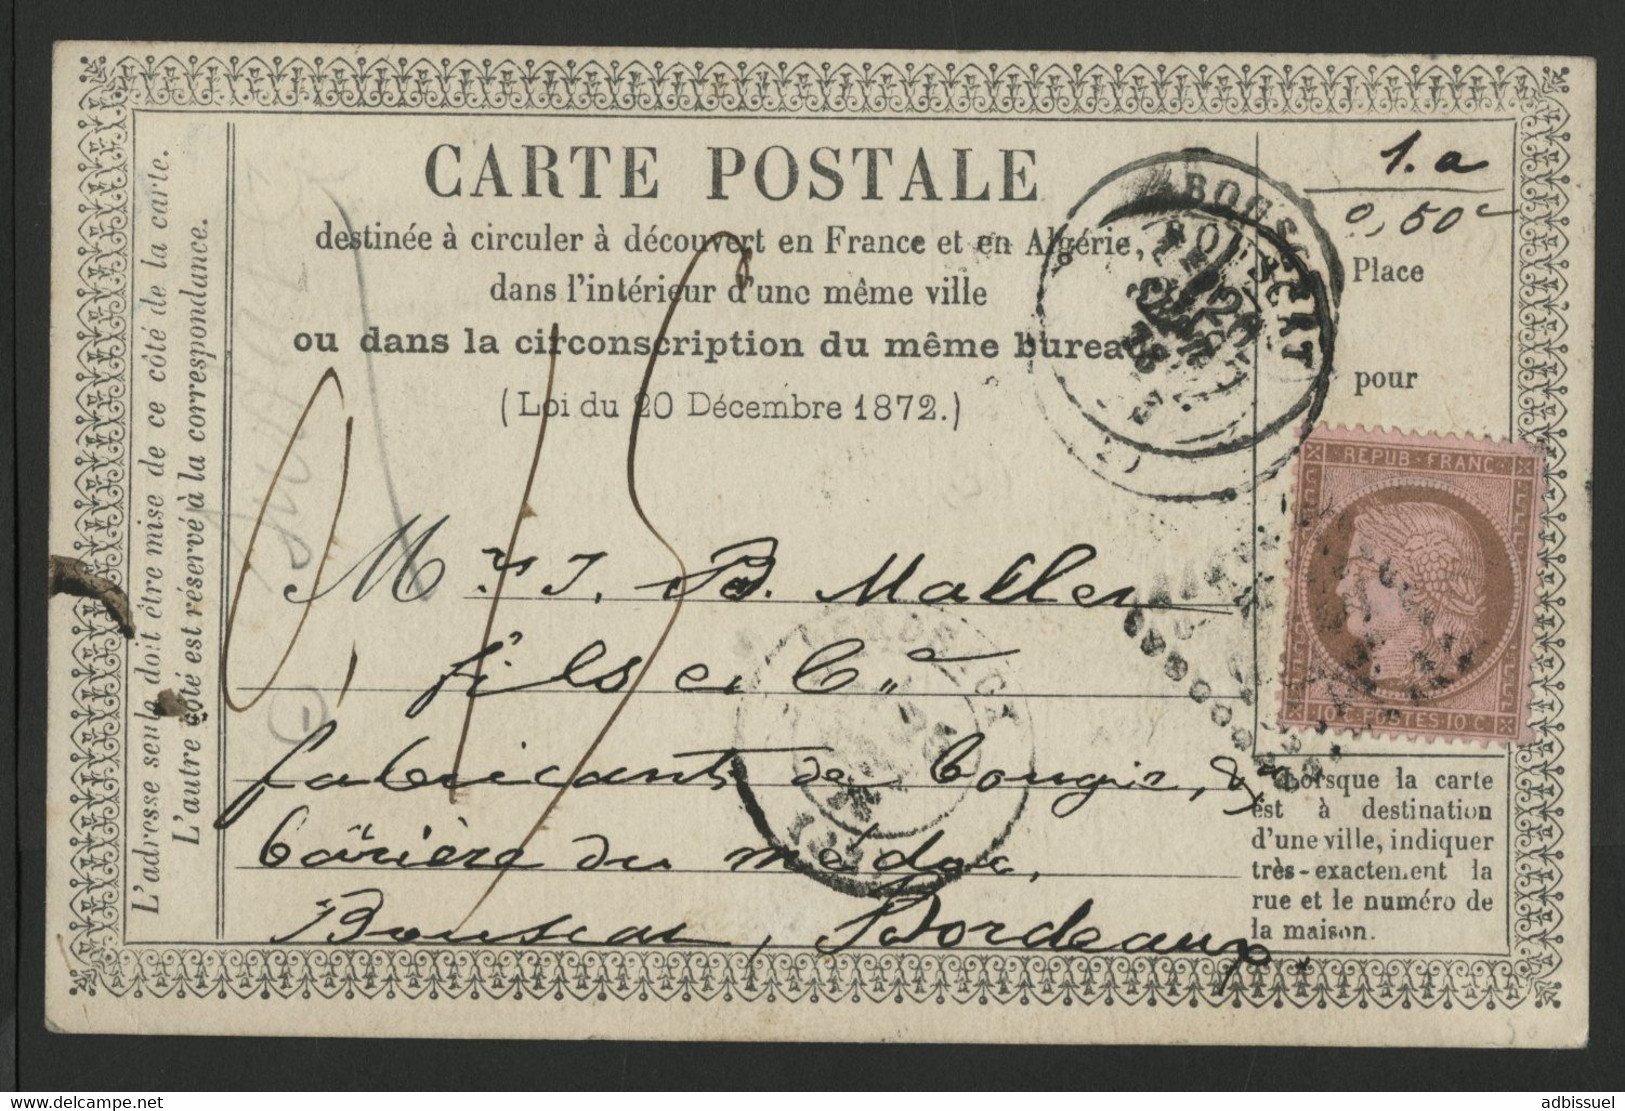 CARTE POSTALE
destinée à circuler à découvert en France et en Algérie,
dans l'intérieur d'une même ville
ou dans la circonscription du même bureau
(Loi du 20 Décembre 1872.)
L'adresse seule doit être mise de ce côté de la carte.
L'autre côté est réservé à la correspondance.
1.a
0,50c
Place
pour
BOUSCAT
REPUB·FRANC
10 C·POSTES·10 C
0,15
Mrs J. B. Maller
fils et Cie
fabricants de bougies,
barière du médoc,
Bouscat, Bordeaux.
Lorsque la carte
est à destination
d'une ville, indiquer
très-exactement la
rue et le numéro de
la maison.
adbissuel